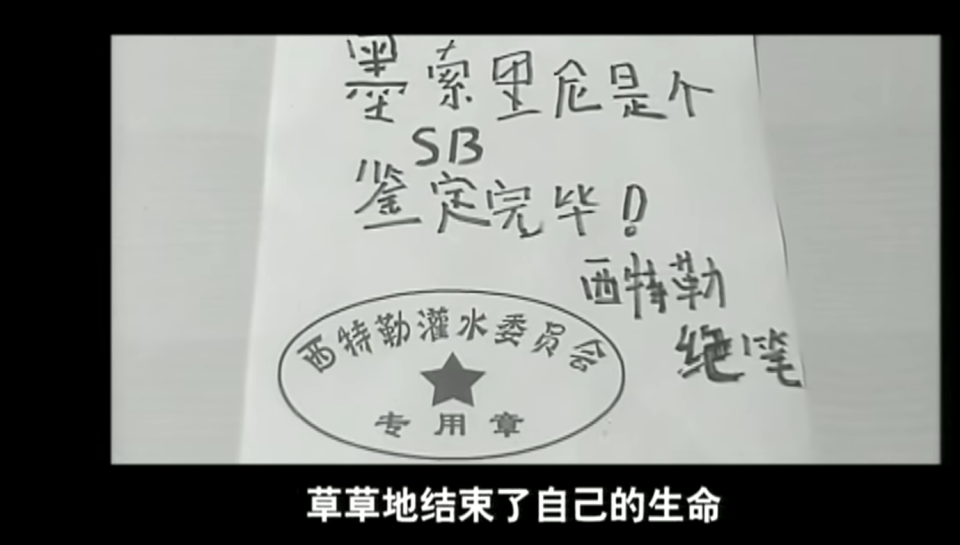 墨索里仑是个
SB
鉴定完毕！
西特勒
绝笔
西特勒灌水委员会
专用章
草草地结束了自己的生命